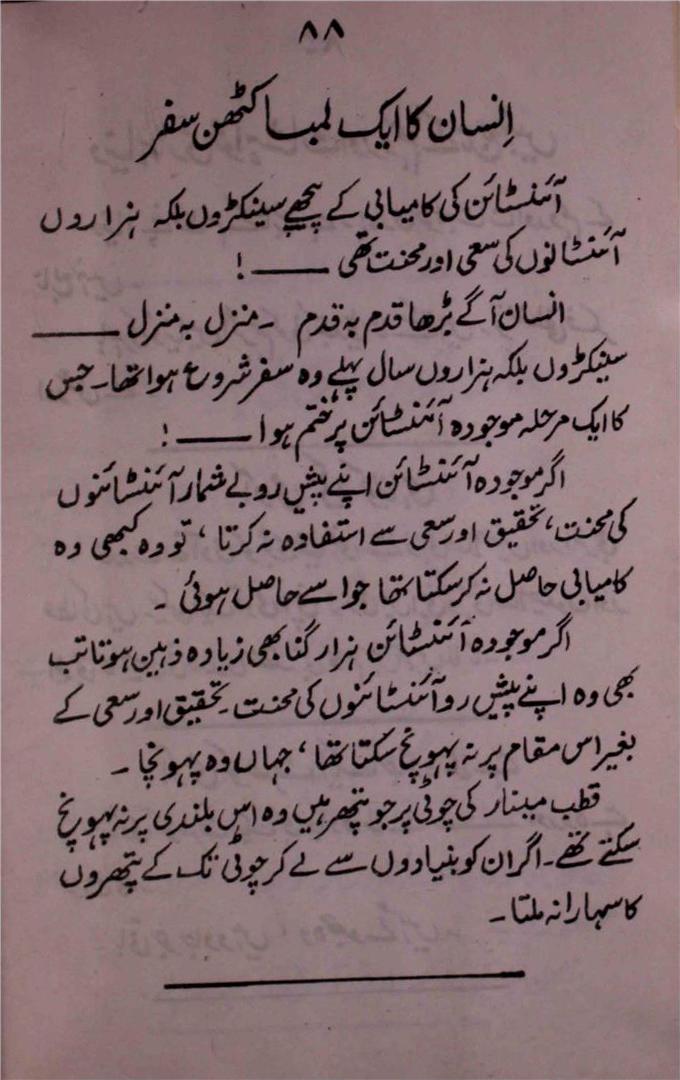 ۸۸
اِنسان کا ایک لمبا کٹھن سفر
آئنسٹائن کی کامیابی کے پیچھے سینکڑوں بلکہ ہزاروں
آئنسٹانوں کی سعی اور محنت تھی ــــــ !
انسان آگے بڑھا قدم بہ قدم ـ منزل بہ منزل ــــــ
سینکڑوں بلکہ ہزاروں سال پہلے وہ سفر شروع ہوا تھا۔ جس
کا ایک مرحلہ موجودہ آئنسٹائن پر ختم ہوا ــــــ !
اگر موجودہ آئنسٹائن اپنے پیش رو بے شمار آئنسٹائنوں
کی محنت، تحقیق اور سعی سے استفادہ نہ کرتا ، تو وہ کبھی وہ
کامیابی حاصل نہ کر سکتا تھا جو اسے حاصل ہوئی ۔
اگر موجودہ آئنسٹائن ہزار گنا بھی زیادہ ذہین ہوتا تب
بھی وہ اپنے پیش رو آئنسٹائنوں کی محنت ۔ تحقیق اور سعی کے
بغیر اس مقام پر نہ پہونچ سکتا تھا ، جہاں وہ پہونچا ۔
قطب مینار کی چوٹی پر جو پتھر ہیں وہ اس بلندی پر نہ پہونچ
سکتے تھے ۔ اگر ان کو بنیادوں سے لے کر چوٹی تک کے پتھروں
کا سہارا نہ ملتا ۔